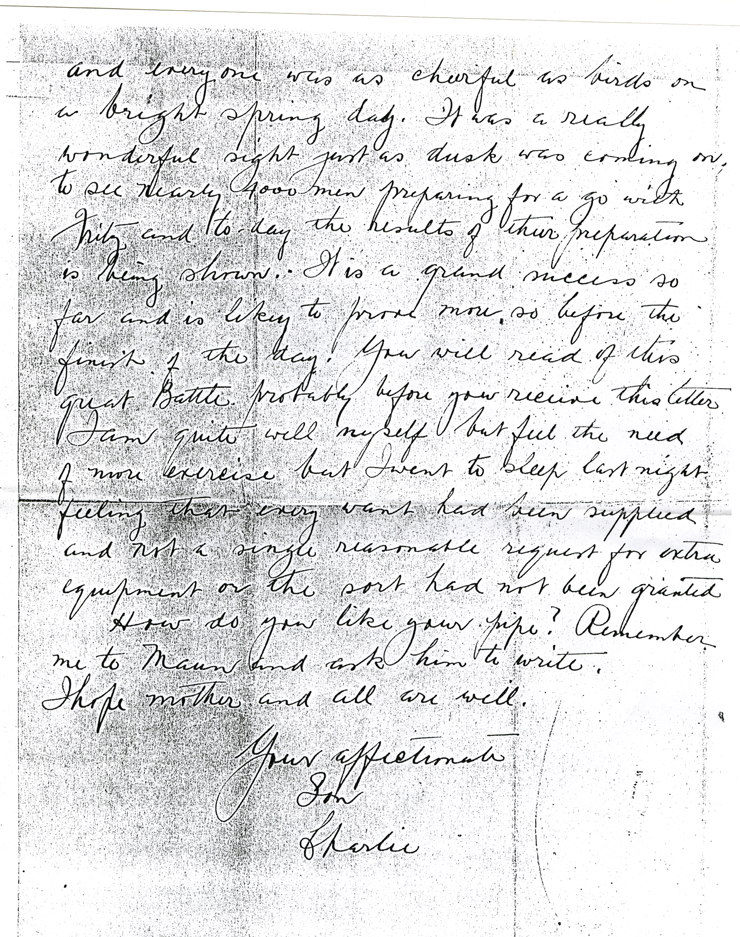 and everyone was as cheerful as birds on
a bright spring day. It was a really
wonderful sight just as dusk was coming on,
to see nearly 4000 men preparing for a go with
Fritz and to-day the results of their preparation
is being shown. It is a grand success so
far and is likely to prove more so before the
finish of the day. You will read of this
great Battle probably before you receive this letter
I am quite well myself but feel the need
of more exercise but I went to sleep last night
feeling that every want had been supplied
and not a single reasonable request for extra
equipment or the sort had not been granted
How do you like your pipe? Remember
me to and ask him to write.
I hope mother and all are well.
Your affectionate
Son
Charlie